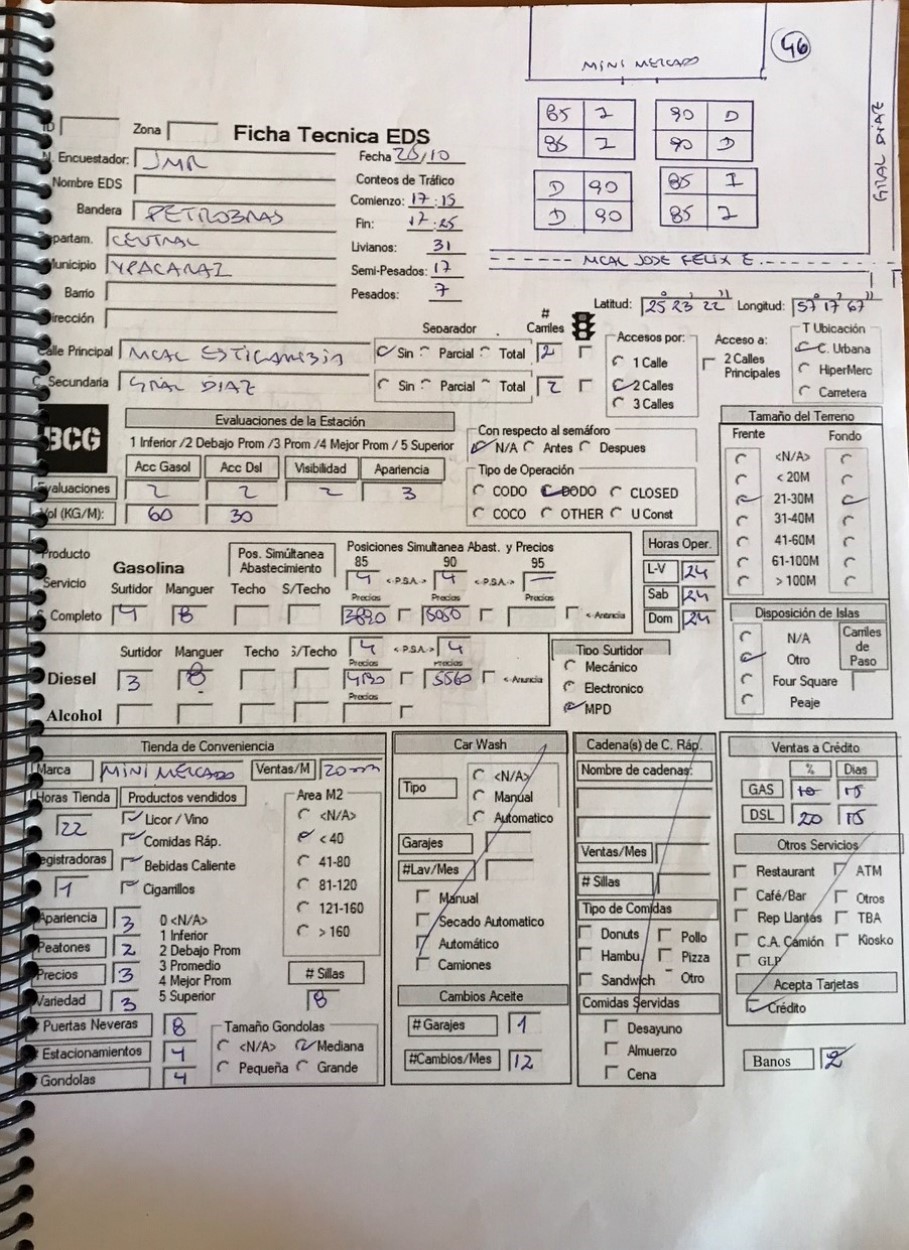 46
MINI MERCADO
85 2 90 D
85 2 90 D
D 90 85 I
D 90 85 2
GRAL DIAZ
MCAL JOSE FELIX E.
ID Zona Ficha Tecnica EDS
N. Encuestador: JMR Fecha 26/10
Nombre EDS Conteos de Tráfico
Bandera PETROBRAS Comienzo: 17:15
Fin: 17:25
Departam. CENTRAL Livianos: 31
Municipio YPACARAI Semi-Pesados: 17
Barrio Pesados: 7
Dirección
Latitud: 25° 23' 22'' Longitud: 57° 17' 67''
Separador # Carriles
Calle Principal MCAL ESTIGARRIBIA Sin Parcial Total 2
C. Secundaria GRAL DIAZ Sin Parcial Total 2
Accesos por:
1 Calle
2 Calles
3 Calles
Acceso a:
2 Calles
Principales
T Ubicación
C. Urbana
HiperMerc
Carretera
BCG
Evaluaciones de la Estación
1 Inferior /2 Debajo Prom /3 Prom /4 Mejor Prom / 5 Superior
Acc Gasol Acc Dsl Visibilidad Apariencia
Evaluaciones 2 2 2 3
Vol (KG/M): 60 30
Con respecto al semáforo
N/A Antes Despues
Tipo de Operación
CODO DODO CLOSED
COCO OTHER U Const
Tamaño del Terreno
Frente Fondo
<N/A>
< 20M
21-30M
31-40M
41-60M
61-100M
> 100M
Producto
Servicio
Gasolina
Pos. Simúltanea
Abastecimiento
Posiciones Simultanea Abast. y Precios
85 90 95
4 <-P.S.A.-> 4 <-P.S.A.-> —
Surtidor Manguer Techo S/Techo Precios Precios Precios
S. Completo 4 8 3890 6050 <-Anuncia
Horas Oper.
L-V 24
Sab 24
Dom 24
Surtidor Manguer Techo S/Techo 4 <-P.S.A.-> 4
Precios Precios
Diesel 3 8 4130 5560 <-Anuncia
Precios
Alcohol
Tipo Surtidor
Mecánico
Electronico
MPD
Disposición de Islas
N/A
Otro
Four Square
Peaje
Carriles
de
Paso
Tienda de Conveniencia
Marca MINI MERCADO Ventas/M 20 mm
Horas Tienda Productos vendidos
22
Licor / Vino
Comidas Ráp.
Bebidas Caliente
Cigarrillos
Registradoras
1
Area M2
<N/A>
< 40
41-80
81-120
121-160
> 160
Apariencia 3
Peatones 2
Precios 3
Variedad 3
0 <N/A>
1 Inferior
2 Debajo Prom
3 Promedio
4 Mejor Prom
5 Superior
# Sillas
8
# Puertas Neveras 8
# Estacionamientos 4
# Gondolas 4
Tamaño Gondolas
<N/A> Mediana
Pequeña Grande
Car Wash
Tipo
<N/A>
Manual
Automatico
Garajes
#Lav/Mes
Manual
Secado Automatico
Automático
Camiones
Cambios Aceite
# Garajes 1
#Cambios/Mes 12
Cadena(s) de C. Ráp.
Nombre de cadenas:
Ventas/Mes
# Sillas
Tipo de Comidas
Donuts Pollo
Hambu. Pizza
Sandwich Otro
Comidas Servidas
Desayuno
Almuerzo
Cena
Ventas a Crédito
% Dias
GAS 10 15
DSL 20 15
Otros Servicios
Restaurant ATM
Café/Bar Otros
Rep Llantas TBA
C.A. Camión Kiosko
GLP
Acepta Tarjetas
Crédito
Banos 2